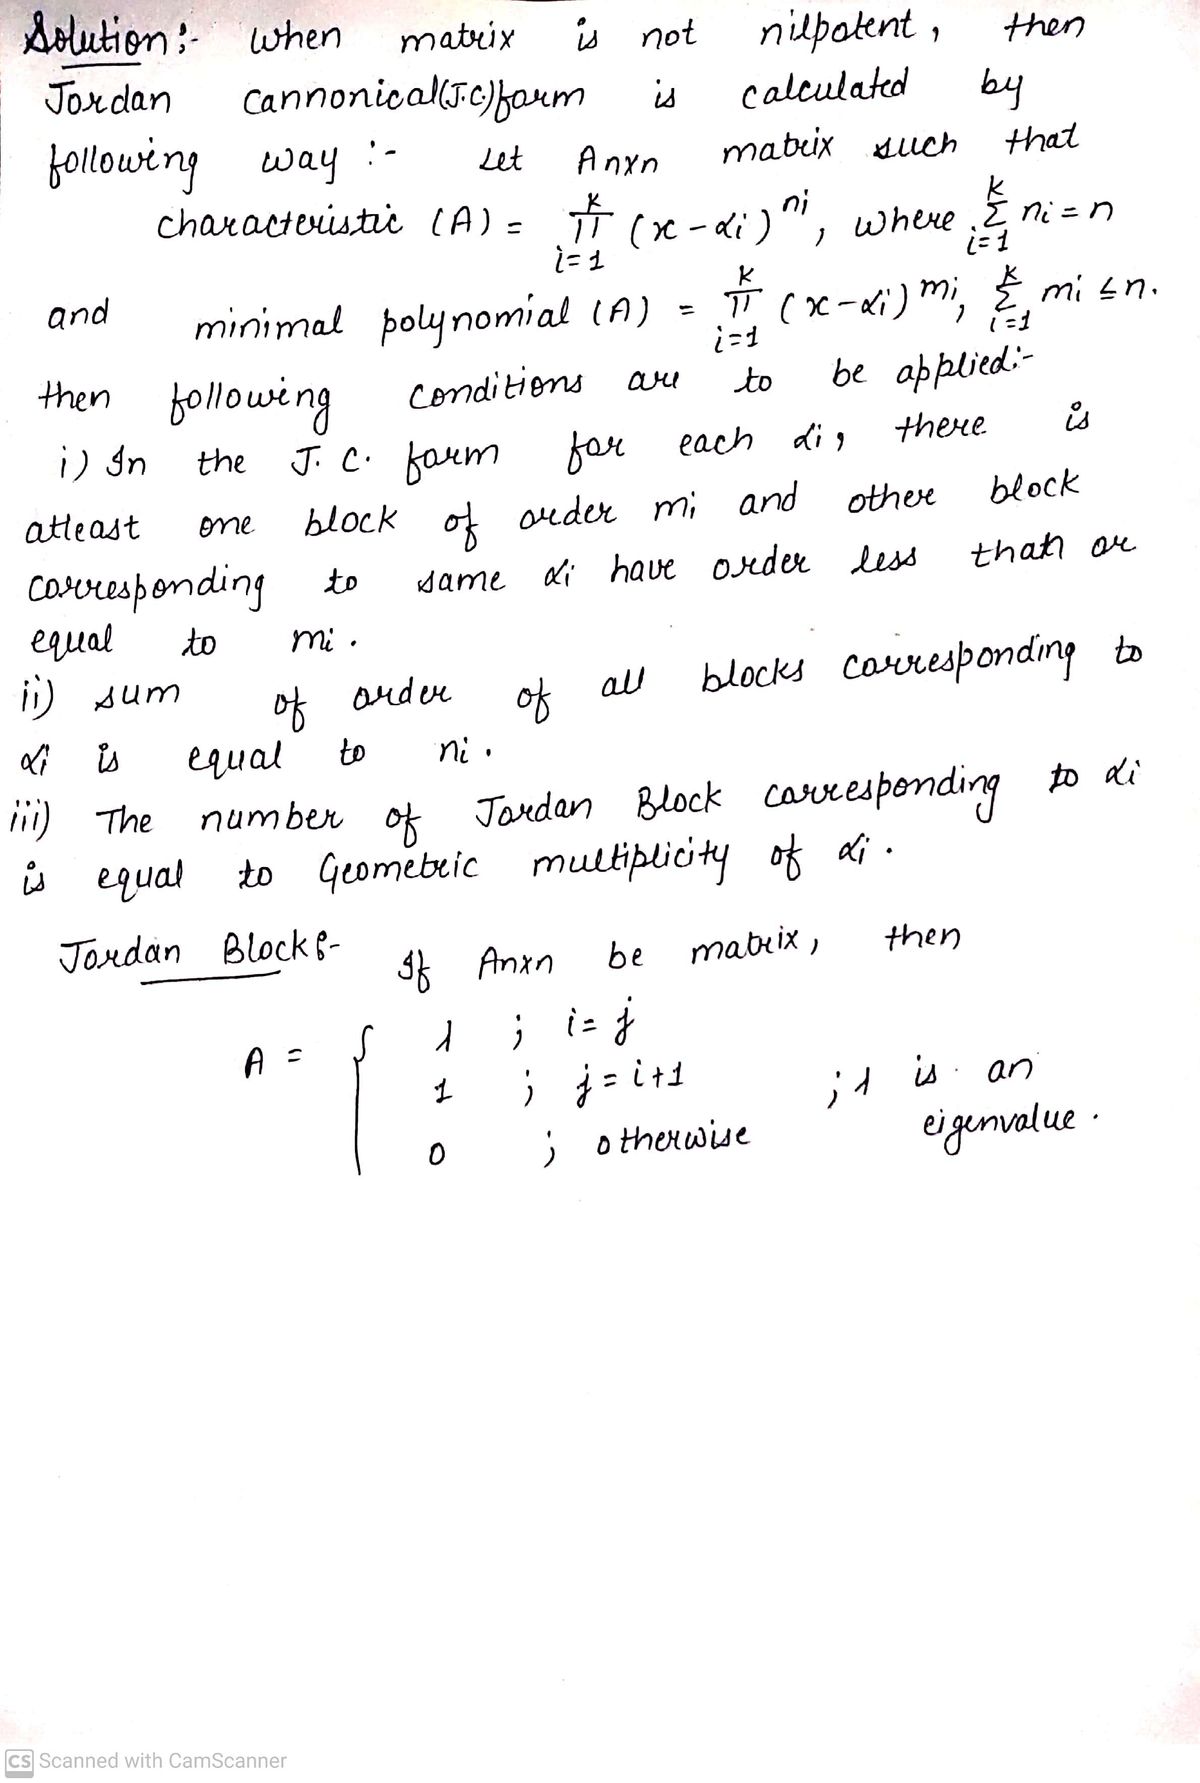 Solution :- When matrix is not nilpotent, then
Jordan Cannonical(J.C)form is calculated by
following way :- Let Anxn matrix such that
characteristic (A) = k π i=1 (x - αi)^ni, where k Σ i=1 ni = n
and minimal polynomial (A) = k π i=1 (x - αi)^mi, k Σ i=1 mi ≤ n.
then following conditions are to be applied:-
i) In the J. C. form for each αi, there is
atleast one block of order mi and other block
corresponding to same αi have order less than or
equal to mi.
ii) sum of order of all blocks corresponding to
αi is equal to ni.
iii) The number of Jordan Block corresponding to αi
is equal to Geometric multiplicity of αi.
Jordan Block :- If Anxn be matrix, then
A = { λ ; i = j
1 ; j = i+1 ; λ is an
0 ; otherwise eigenvalue.
CS Scanned with CamScanner